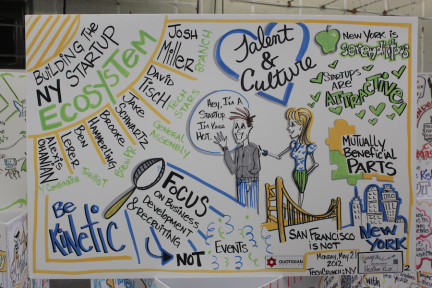 BUILDING THE
NY STARTUP
ECOSYSTEM
JOSH
MILLER
BRANCH
DAVID
TISCH
TECH
STARS
JAKE
SCHWARTZ
GENERAL
ASSEMBLY
BEN
LERER
ALEXIS
OHANIAN
Talent
&
Culture
Hey, I'm A
STARTUP
I'm Kinda
HOT.
NEW YORK IS
SERENDIPITOUS
STARTUPS
ARE
ATTRACTIVE
MUTUALLY
BENEFICIAL
PARTS
SAN FRANCISCO
IS NOT
NEW
YORK
BE
KINETIC
FOCUS
ON BUSINESS
DEVELOPMENT
& RECRUITING
NOT
EVENTS
QUOTIDIAN
MONDAY, MAY 21
2012
TECHCRUNCH NY